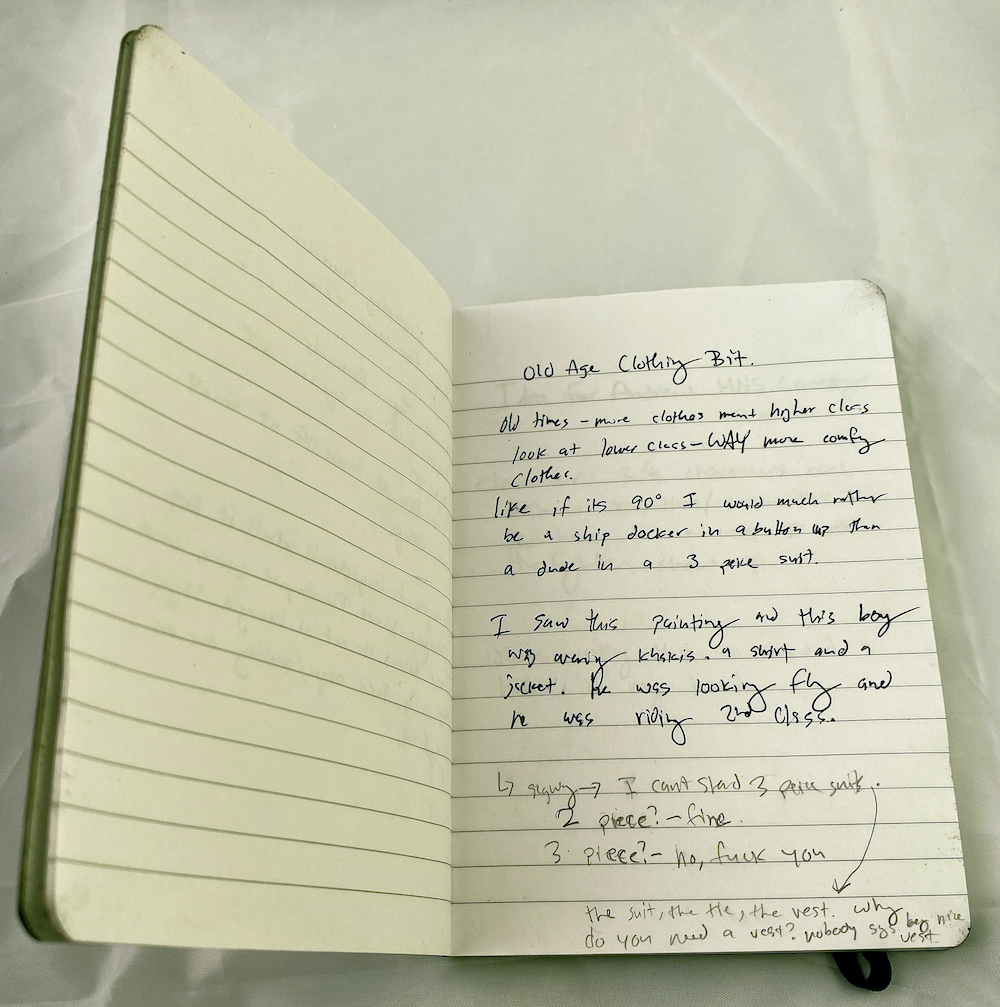 Old Age Clothing Bit.
Old times - more clothes ment higher class
look at lower class - WAY more comfy
clothes.
like if its 90° I would much rather
be a ship docker in a button up than
a dude in a 3 peice suit.
I saw this painting and this boy
was wearing khakis. a shirt and a
jacket. He was looking fly and
he was riding 2nd class.
↳ segwy → I cant stand 3 peice suits.
2 piece? - fine.
3 piece? - no, fuck you
the suit, the tie, the vest. why
do you need a vest? nobody says hey nice
vest.